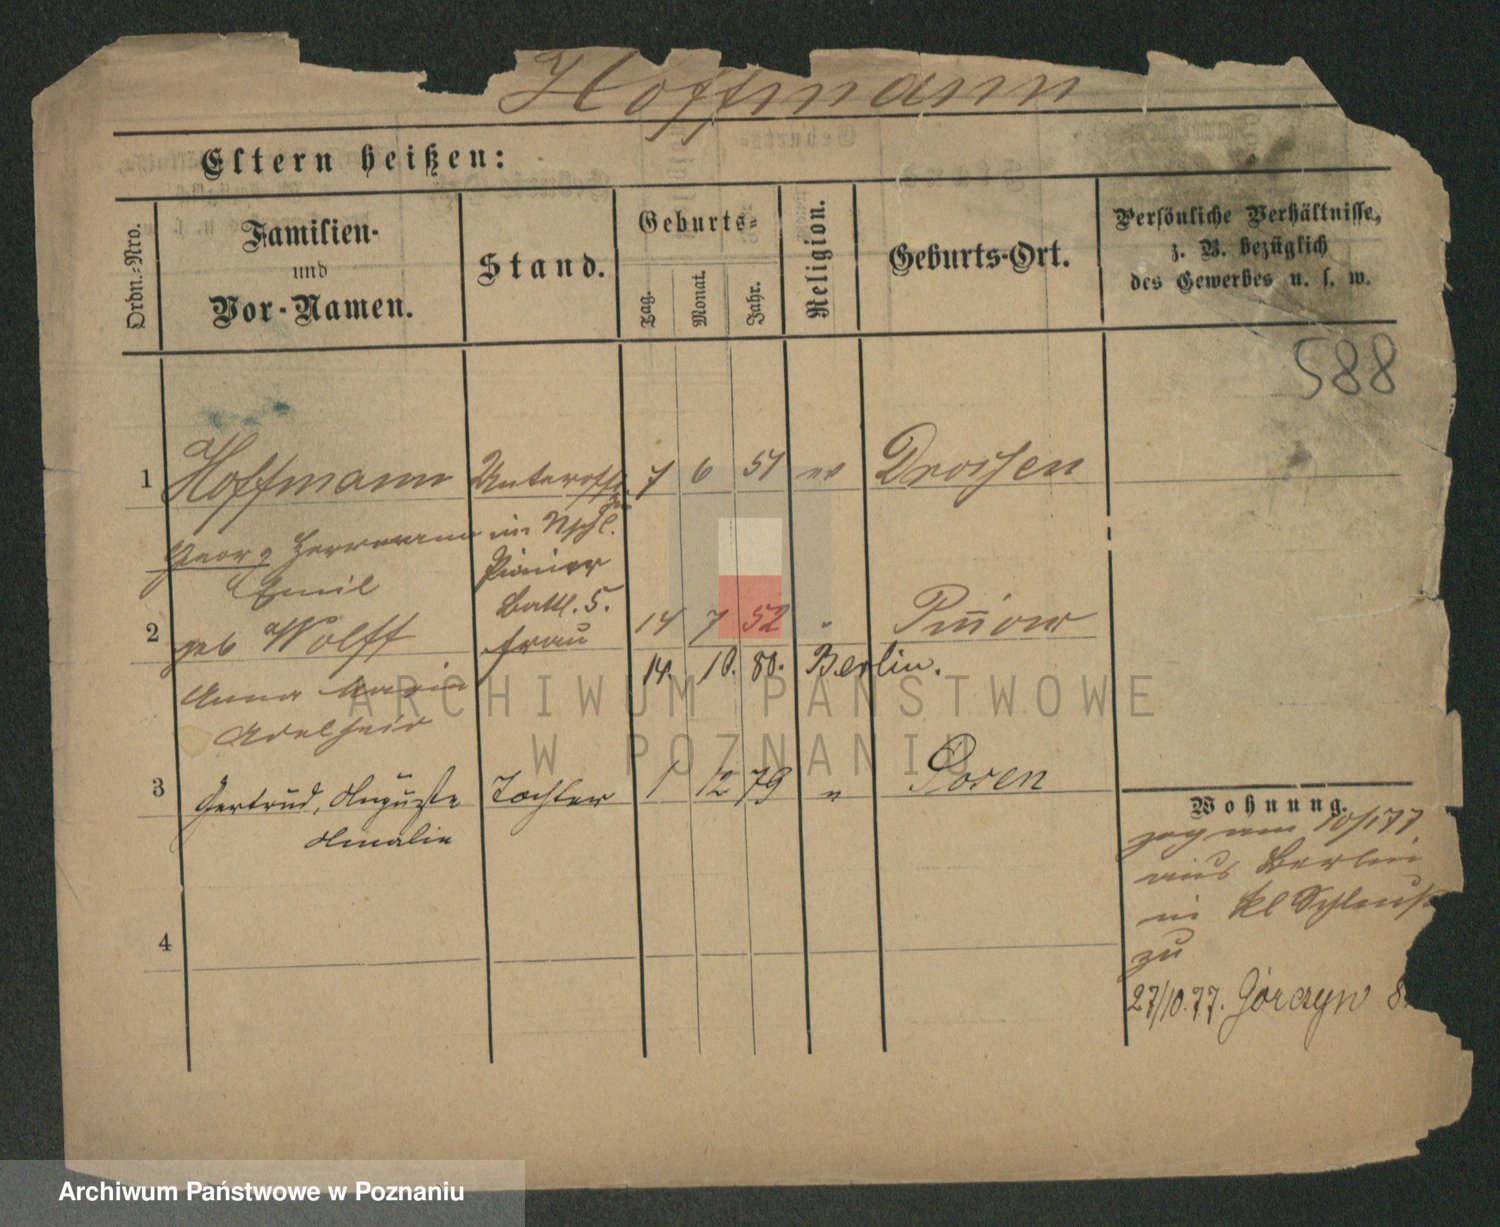 Hoffmann
Eltern heißen:
Ordn.-Nro.
Familien-
und
Vor-Namen.
Stand.
Geburts-
Tag.
Monat.
Jahr.
Religion.
Geburts-Ort.
Persönliche Verhältnisse,
z. B. bezüglich
des Gewerbes u. s. w.
588
1 Hoffmann Unteroffz 7 6 51 ev Drossen
Georg Herrmann im Nschl.
Emil Pionier
Battl. 5.
2 geb Wolff Frau 14 7 52 "
14. 10. 80. Berlin.
Anna Maria
Adelheid
3 Gertrud, Auguste Tochter 1 12 79 " Posen
Amalie
4
Wohnung.
zog am 10/1 77
aus Berlin
in kl
zu
27/10.77. Górczyn 8
ARCHIWUM PAŃSTWOWE
W POZNANIU
Archiwum Państwowe w Poznaniu